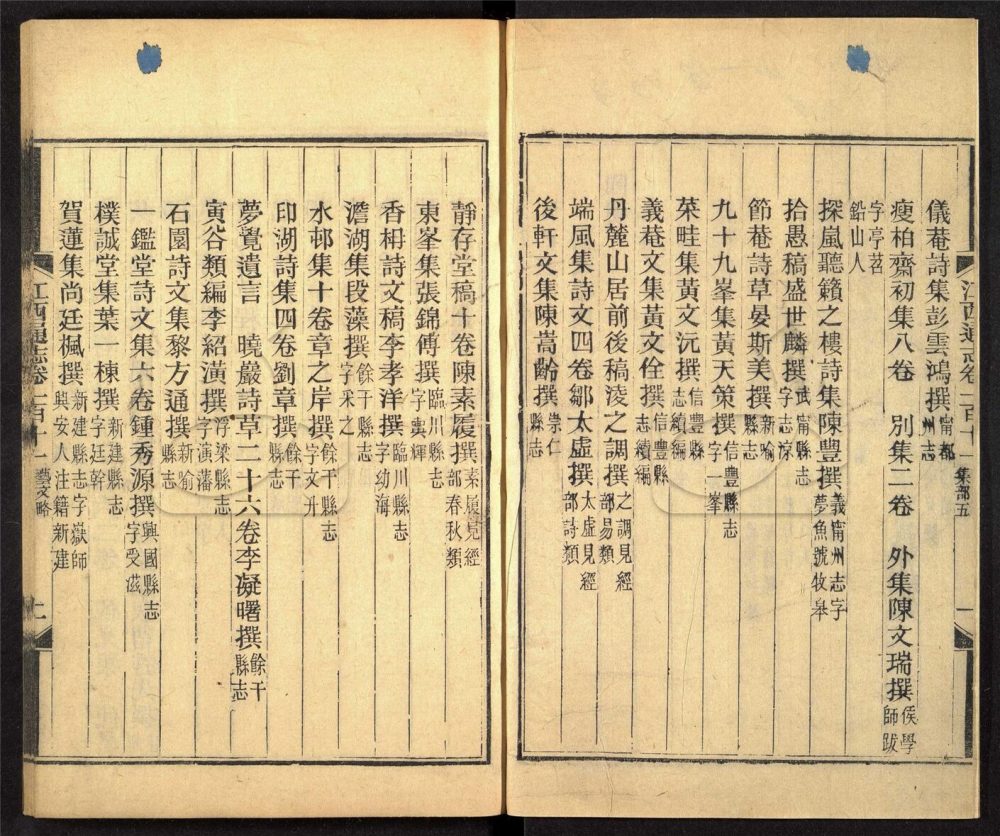 儀菴詩集彭雲鴻撰甯都州志
瘦柏齋初集八卷　別集二卷　外集陳文瑞撰侯學師跋
字亭苕
鉛山人
探嵐聽籟之樓詩集陳豐撰義甯州志字夢魚號牧牟
拾愚稿盛世麟撰武甯縣志字志涼
節菴詩草晏斯美撰新喻縣志
九十九峯集黃天策撰信豐縣志字一峯
菜畦集黃文沅撰信豐縣志續編
義菴文集黃文佺撰信豐縣志續編
丹麓山居前後稿淩之調撰之調見經部易類
端風集詩文四卷鄒太虛撰太虛見經部詩類
後軒文集陳嵩齡撰崇仁縣志
江西通志卷一百十一 集部五 一
靜存堂稿十卷陳素履撰素履見經部春秋類
東峯集張錦傅撰臨川縣志字輿輝
香枏詩文稿李孝洋撰臨川縣志字幼海
澹湖集段藻撰餘干縣志字采之
水邨集十卷章之岸撰餘干縣志字文丹
印湖詩集四卷劉章撰餘干縣志
夢覺遺言　曉巖詩草二十六卷李凝曙撰餘干縣志
寅谷類編李紹潢撰浮梁縣志字演藩
石園詩文集黎方通撰新喻縣志
一鑑堂詩文集六卷鍾秀源撰興國縣志字受滋
樸誠堂集葉一棟撰新建縣志字廷幹
賀蓮集尚廷楓撰新建縣志字嶽師興安人注籍新建
江西通志卷一百十一 藝文略